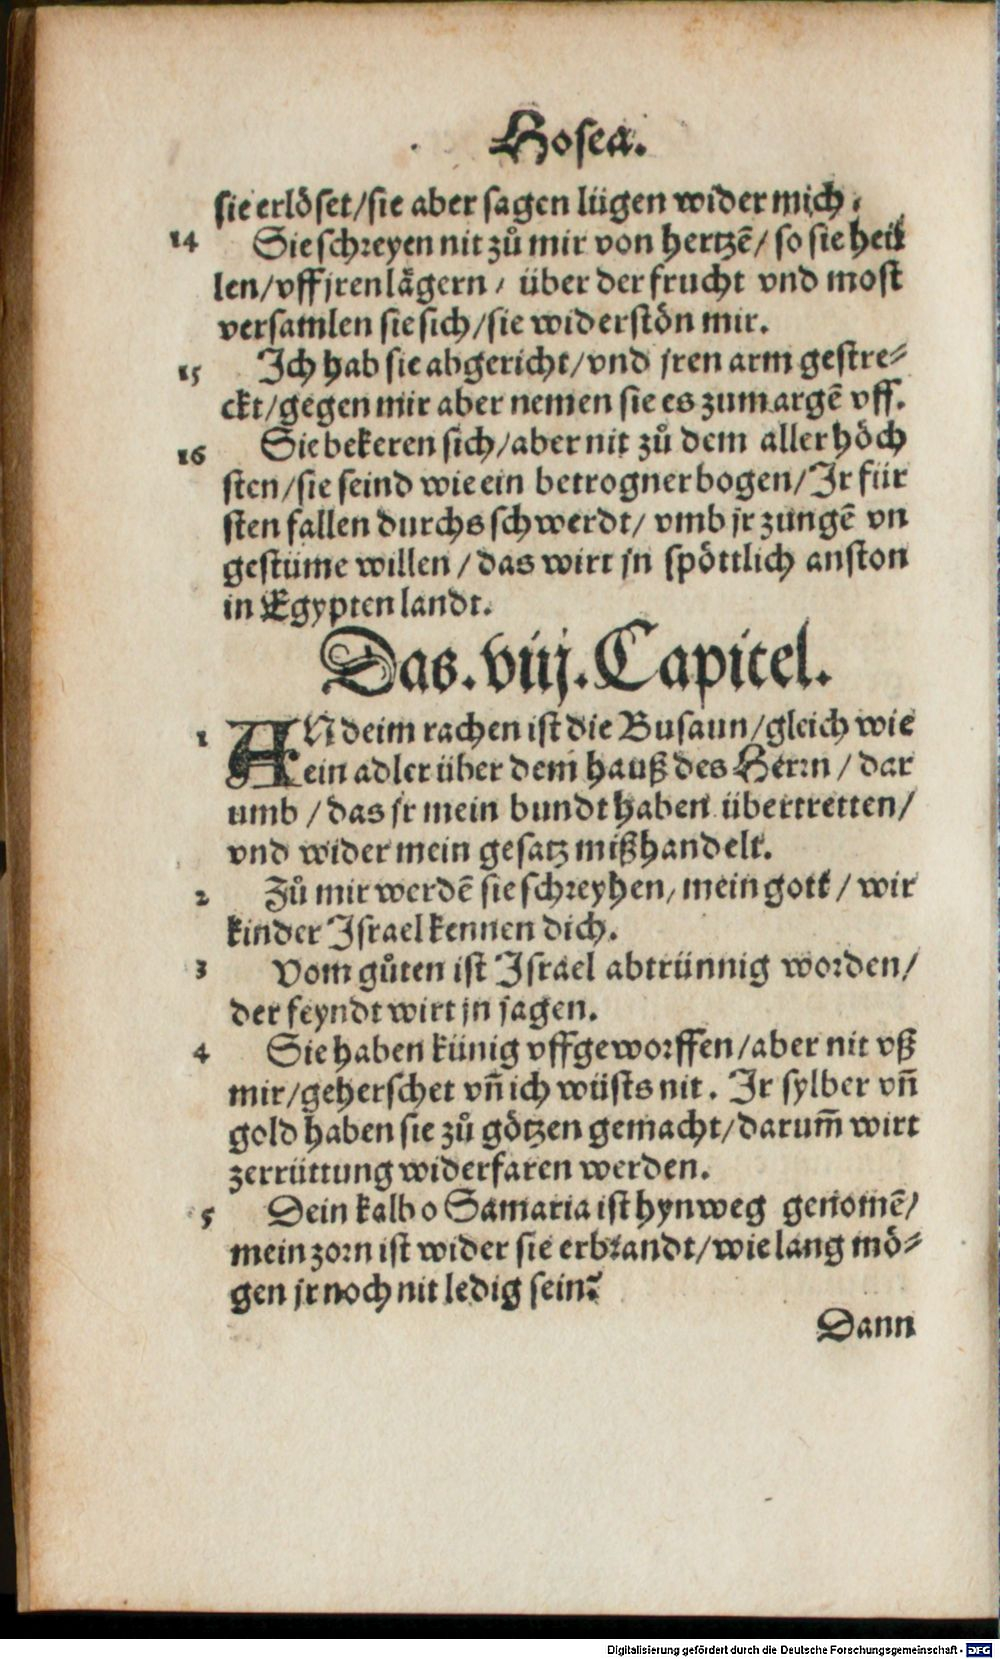 Hosea.
sie erlöset/sie aber sagen lügen wider mich.
14 Sie schreyen nit zů mir von hertzē/ so sie heil
len/vff jren lägern/ über der frucht vnd most
versamlen sie sich/sie widerstön mir.
15 Ich hab sie abgericht/vnd jren arm gestre⸗
ckt/gegen mir aber nemen sie es zum argē vff.
16 Sie bekeren sich/aber nit zů dem aller höch
sten/sie seind wie ein betrogner bogen/Ir für
sten fallen durchs schwerdt/ vmb jr zungē vn
gestüme willen/das wirt jn spöttlich anston
in Egypten landt.
Das.viij.Capitel.
1 AN deim rachen ist die Busaun/gleich wie
ein adler über dem hauß des Herrn/dar
umb/das jr mein bundt haben übertretten/
vnd wider mein gesatz mißhandelt.
2 Zů mir werdē sie schreyhen, mein gott/wir
kinder Israel kennen dich.
3 Vom gůten ist Israel abtrünnig worden/
der feyndt wirt jn jagen.
4 Sie haben künig vffgeworffen/aber nit vß
mir/geherschet vñ ich wüsts nit. Ir sylber vñ
gold haben sie zů götzen gemacht/darum̃ wirt
zerrüttung widerfaren werden.
5 Dein kalb o Samaria ist hynweg genomē/
mein zorn ist wider sie erbrandt/wie lang mö⸗
gen jr noch nit ledig sein?
Dann
Digitalisierung gefördert durch die Deutsche Forschungsgemeinschaft - DFG